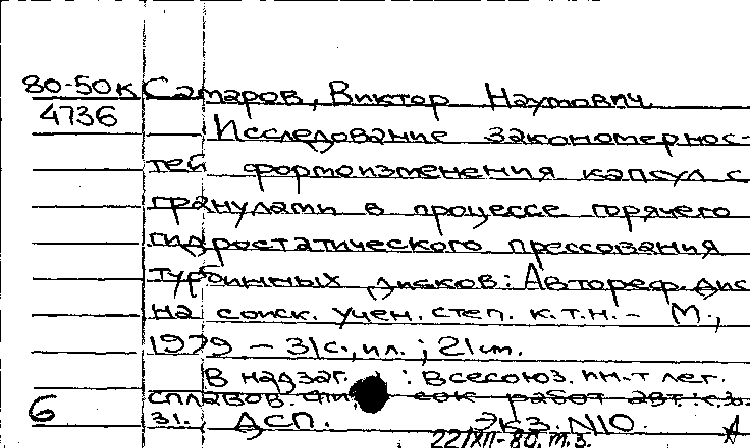 80-50к Самаров, Виктор Наумович
4736
Исследование закономернос-
тей формоизменения капсул с
гранулами в процессе горячего
гидростатического прессования
турбинных дисков: Автореф. дис
на соиск. учен. степ. к.т.н. - М.,
1979 - 31с., ил. ; 21см.
В надзаг. : Всесоюз. ин-т лег.
сплавов. сок работ авт.: с.
31. ДСП. Экз. N10.
6
22/XII-80. т.з.